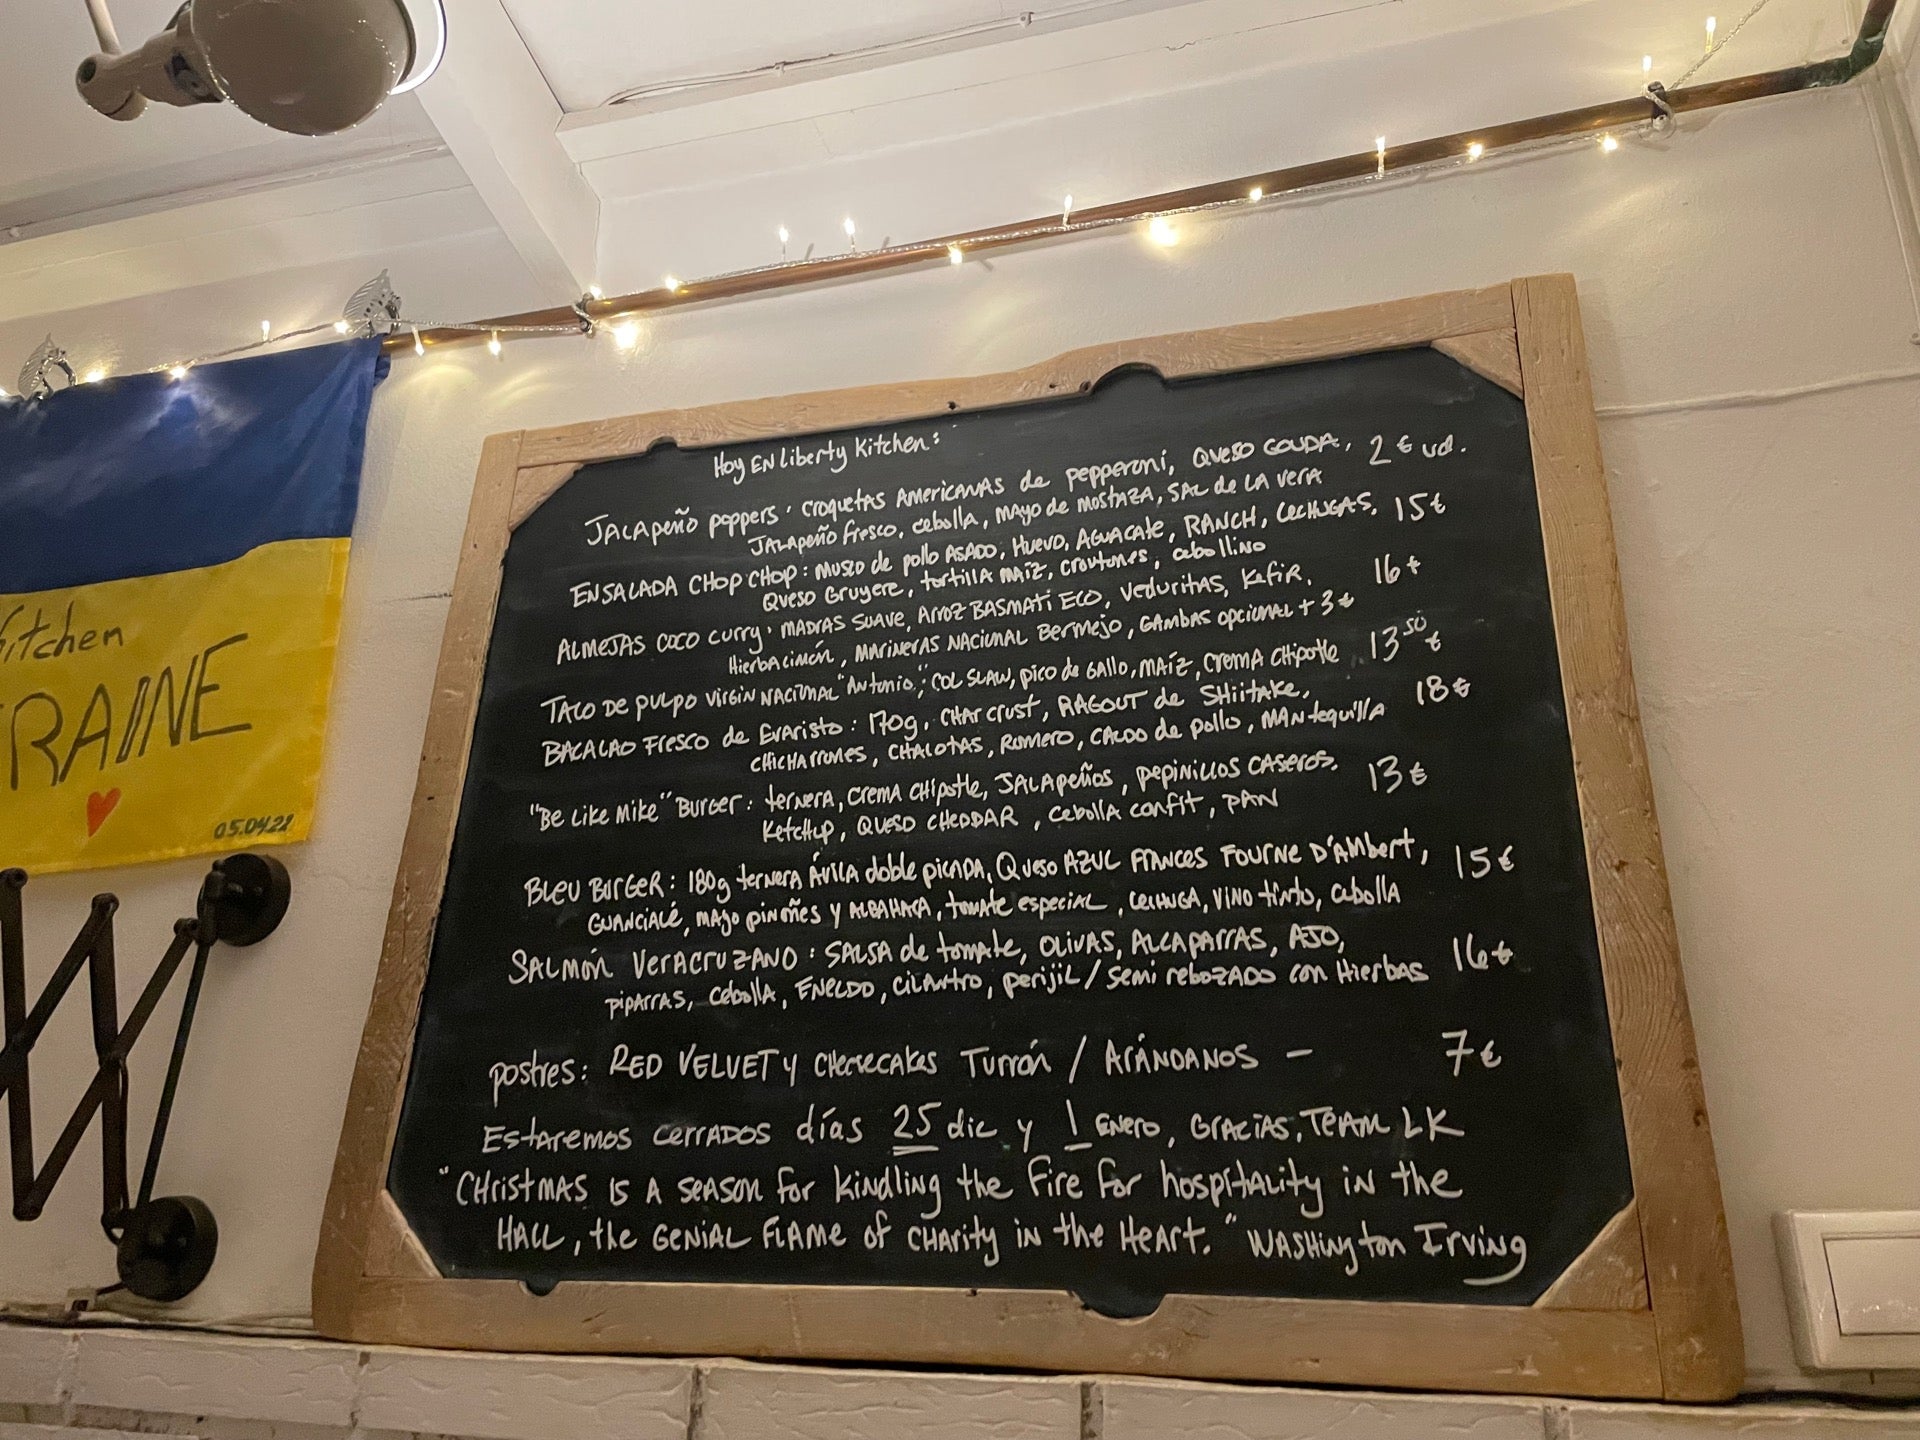 Hoy EN Liberty Kitchen:
JALAPEÑO poppers: CROQUETAS AMERICANAS de pepperoni, QUESO GOUDA, 2€ ud.
JALAPEÑO fresco, cebolla, MAYO de MOSTAZA, SAL de LA VERA
ENSALADA CHOP CHOP: MUSLO de pollo ASADO, HUEVO, AGUACATE, RANCH, LECHUGAS, 15€
QUESO Gruyere, tortilla MAÍZ, croutones, cebollino
ALMEJAS COCO curry: MADRAS SUAVE, Arroz BASMATI ECO, Veduritas, Kefir, 16€
Hierba limón, MARINERAS NACIONAL Bermejo, GAMBAS opcional + 3€
TACO DE PULPO VIRGIN NACIONAL "Antonio": COL SLAW, pico de GALLO, MAÍZ, CREMA CHIPOTLE 13⁵⁰€
BACALAO Fresco de Evaristo: 170g, CHAR CRUST, RAGOUT de SHiitake, 18€
CHICHARRONES, CHALOTAS, Romero, CALDO de pollo, MANtequilla
"Be Like Mike" Burger: ternera, CREMA CHIPOTLE, JALAPEÑOS, pepinillos CASEROS. 13€
Ketchup, QUESO CHEDDAR, Cebolla confit, PAN
BLEU BURGER: 180g ternera ÁVILA doble picada, QUESO AZUL FRANCES FOURNE D'AMBERT, 15€
GUANCIALÉ, MAYO piñones y ALBAHACA, tomate especial, LECHUGA, VINO tinto, cebolla
SALMÓN VERACRUZANO: SALSA de tomate, OLIVAS, ALCAPARRAS, AJO, 16€
PIPARRAS, Cebolla, ENELDO, CILANTRO, perijil / semi rebozado con Hierbas
postres: RED VELVET y Cheesecakes Turrón / ARÁNDANOS — 7€
Estaremos cerrados días 25 dic y 1 Enero, GRACIAS, TEAM LK
"CHRISTMAS IS A SEASON for kindling the Fire for hospitality in the
HALL, the GENIAL FLAME of CHARITY in the HEART." WASHINGTON Irving
Kitchen
RAINE
05.04.22